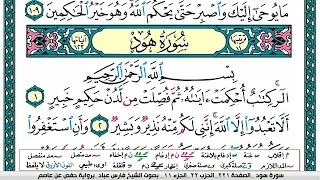 مَا يُوحَىٰٓ إِلَيْكَ وَٱصْبِرْ حَتَّىٰ يَحْكُمَ ٱللَّهُ وَهُوَ خَيْرُ ٱلْحَٰكِمِينَ ١٠٩
سُورَةُ هُودٍ
بِسْمِ ٱللَّهِ ٱلرَّحْمَٰنِ ٱلرَّحِيمِ
الٓر كِتَٰبٌ أُحْكِمَتْ ءَايَٰتُهُۥ ثُمَّ فُصِّلَتْ مِن لَّدُنْ حَكِيمٍ خَبِيرٍ ١
أَلَّا تَعْبُدُوٓا۟ إِلَّا ٱللَّهَ إِنَّنِى لَكُم مِّنْهُ نَذِيرٌ وَبَشِيرٌ ٢ وَأَنِ ٱسْتَغْفِرُوا۟
سورة هود - الصفحة ٢٢١ الحزب ٢٢ الجزء ١١ بصوت الشيخ فارس عباد برواية حفص عن عاصم